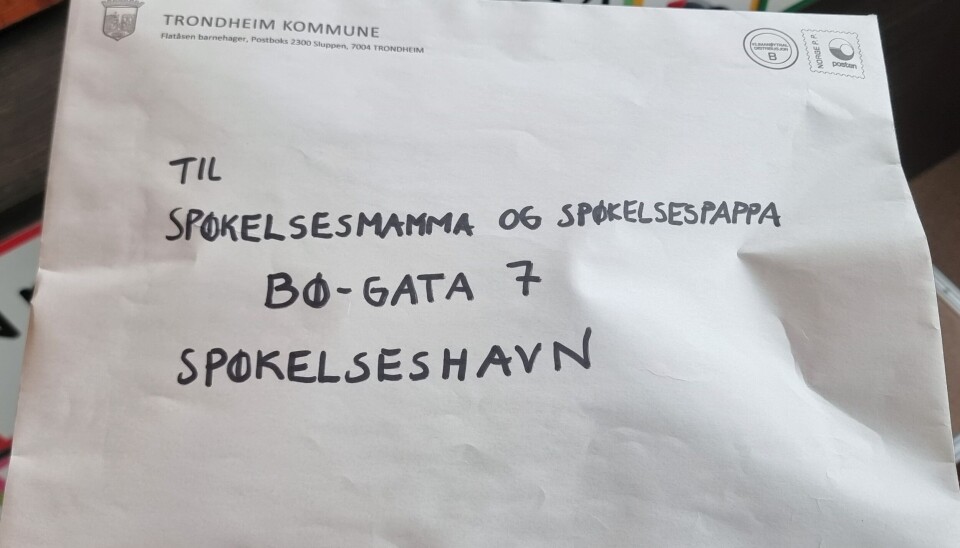 TRONDHEIM KOMMUNE
Flatåsen barnehager, Postboks 2300 Sluppen, 7004 TRONDHEIM
KLIMANØYTRAL
DISTRIBUSJON
B
NORGE P.P.
posten
TIL
SPØKELSESMAMMA OG SPØKELSESPAPPA
BØ-GATA 7
SPØKELSESHAVN